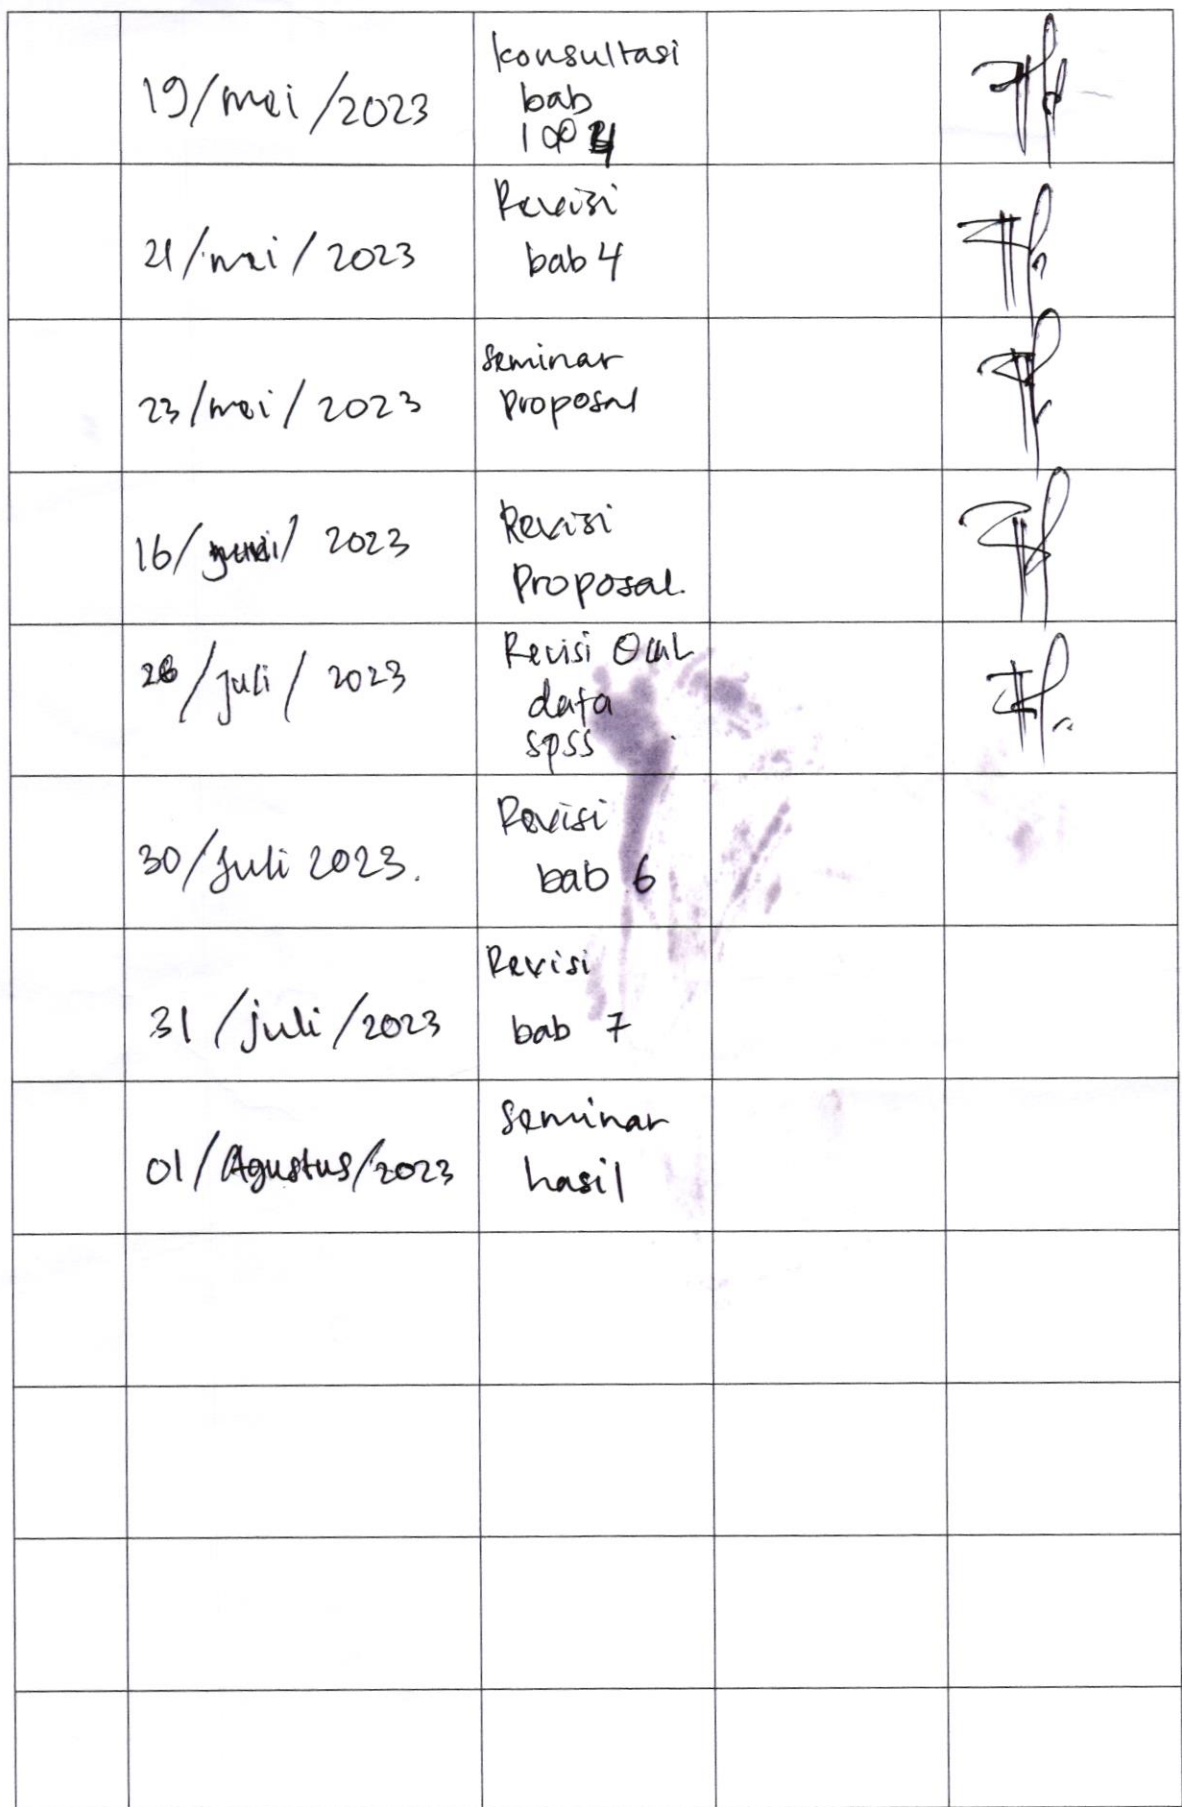 19/mei/2023
konsultasi
bab
1
4
21/mei/2023
Revisi
bab 4
23/mei/2023
Seminar
Proposal
16/juni/2023
Revisi
Proposal.
28/juli/2023
Revisi
data
SPSS
30/Juli 2023.
Revisi
bab 6
31/juli/2023
Revisi
bab 7
01/Agustus/2023
Seminar
hasil